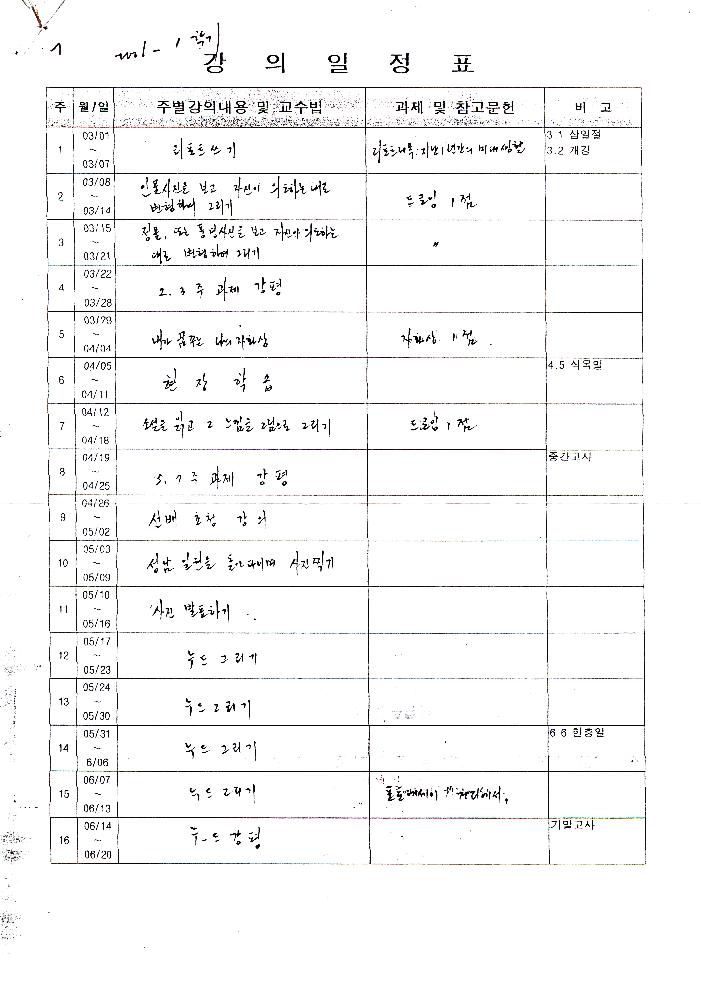 1
2001 - 1 학기
강 의 일 정 표
주 월/일 주별강의내용 및 교수법 과제 및 참고문헌 비 고
1 03/01 ~ 03/07 리포트쓰기 리포트제목: 지난 1년간의 미대생활 3.1 삼일절
3.2 개강
2 03/08 ~ 03/14 인물사진을 보고 자신이 의도하는대로
변형하여 그리기 드로잉 1점
3 03/15 ~ 03/21 정물, 또는 풍경사진을 보고 자신이 의도하는
대로 변형하여 그리기 〃
4 03/22 ~ 03/28 2. 3 주 과제 강평
5 03/29 ~ 04/04 내가 꿈꾸는 나의 자화상 자화상 1점.
6 04/05 ~ 04/11 현 장 학 습 4.5 식목일
7 04/12 ~ 04/18 소설을 읽고 그 느낌을 그림으로 그리기 드로잉 1점
8 04/19 ~ 04/25 5. 7 주 과제 강평 중간고사
9 04/26 ~ 05/02 선배 초청 강의
10 05/03 ~ 05/09 성남 일원을 돌아다니며 사진찍기
11 05/10 ~ 05/16 사진 발표하기
12 05/17 ~ 05/23 누드 그리기
13 05/24 ~ 05/30 누드그리기
14 05/31 ~ 6/06 누드 그리기 6.6 현충일
15 06/07 ~ 06/13 누드 그리기
16 06/14 ~ 06/20 누드 강평 기말고사